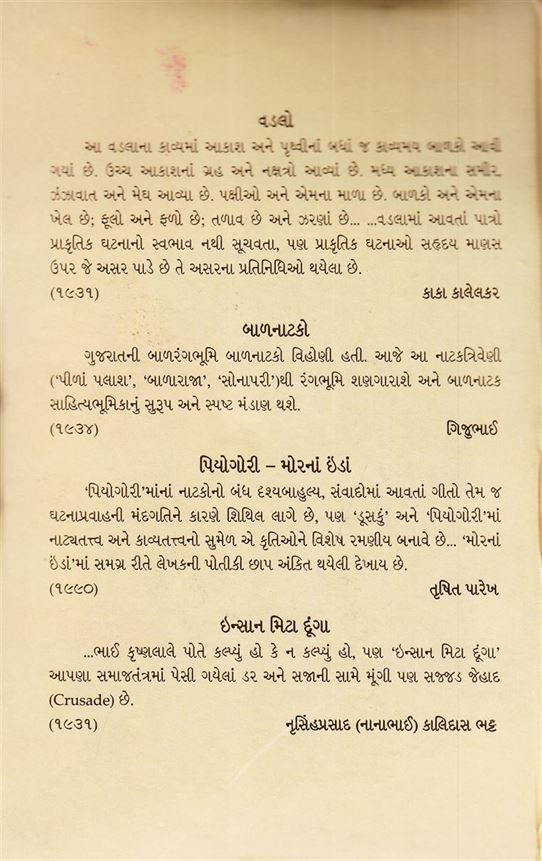 વડલો
આ વડલાના કાવ્યમાં આકાશ અને પૃથ્વીનાં બધાં જ કાવ્યમય બાળકો આવી
ગયાં છે. ઉચ્ચ આકાશનાં ગ્રહ અને નક્ષત્રો આવ્યાં છે. મધ્ય આકાશના સમીર,
ઝંઝાવાત અને મેઘ આવ્યા છે. પક્ષીઓ અને એમના માળા છે. બાળકો અને એમના
ખેલ છે; ફૂલો અને ફળો છે; તળાવ છે અને ઝરણાં છે... ...વડલામાં આવતાં પાત્રો
પ્રાકૃતિક ઘટનાનો સ્વભાવ નથી સૂચવતા, પણ પ્રાકૃતિક ઘટનાઓ સહૃદય માણસ
ઉપર જે અસર પાડે છે તે અસરના પ્રતિનિધિઓ થયેલા છે.
(૧૯૩૧) કાકા કાલેલકર
બાળનાટકો
ગુજરાતની બાળરંગભૂમિ બાળનાટકો વિહોણી હતી. આજે આ નાટકત્રિવેણી
('પીળાં પલાશ', 'બાળારાજા', 'સોનાપરી')થી રંગભૂમિ શણગારાશે અને બાળનાટક
સાહિત્યભૂમિકાનું સુરૂપ અને સ્પષ્ટ મંડાણ થશે.
(૧૯૩૪) ગિજુભાઈ
પિયોગોરી – મોરનાં ઇંડાં
'પિયોગોરી'માંનાં નાટકોનો બંધ દૃશ્યબાહુલ્ય, સંવાદોમાં આવતાં ગીતો તેમ જ
ઘટનાપ્રવાહની મંદગતિને કારણે શિથિલ લાગે છે, પણ 'ડૂસકું' અને 'પિયોગોરી'માં
નાટ્યતત્ત્વ અને કાવ્યતત્ત્વનો સુમેળ એ કૃતિઓને વિશેષ રમણીય બનાવે છે... 'મોરનાં
ઇંડાં'માં સમગ્ર રીતે લેખકની પોતીકી છાપ અંકિત થયેલી દેખાય છે.
(૧૯૯૦) તૃષિત પારેખ
ઇન્સાન મિટા દૂંગા
...ભાઈ કૃષ્ણલાલે પોતે કલ્પ્યું હો કે ન કલ્પ્યું હો, પણ 'ઇન્સાન મિટા દૂંગા'
આપણા સમાજતંત્રમાં પેસી ગયેલાં ડર અને સજાની સામે મૂંગી પણ સજ્જડ જેહાદ
(Crusade) છે.
(૧૯૩૧) નૃસિંહપ્રસાદ (નાનાભાઈ) કાલિદાસ ભટ્ટ